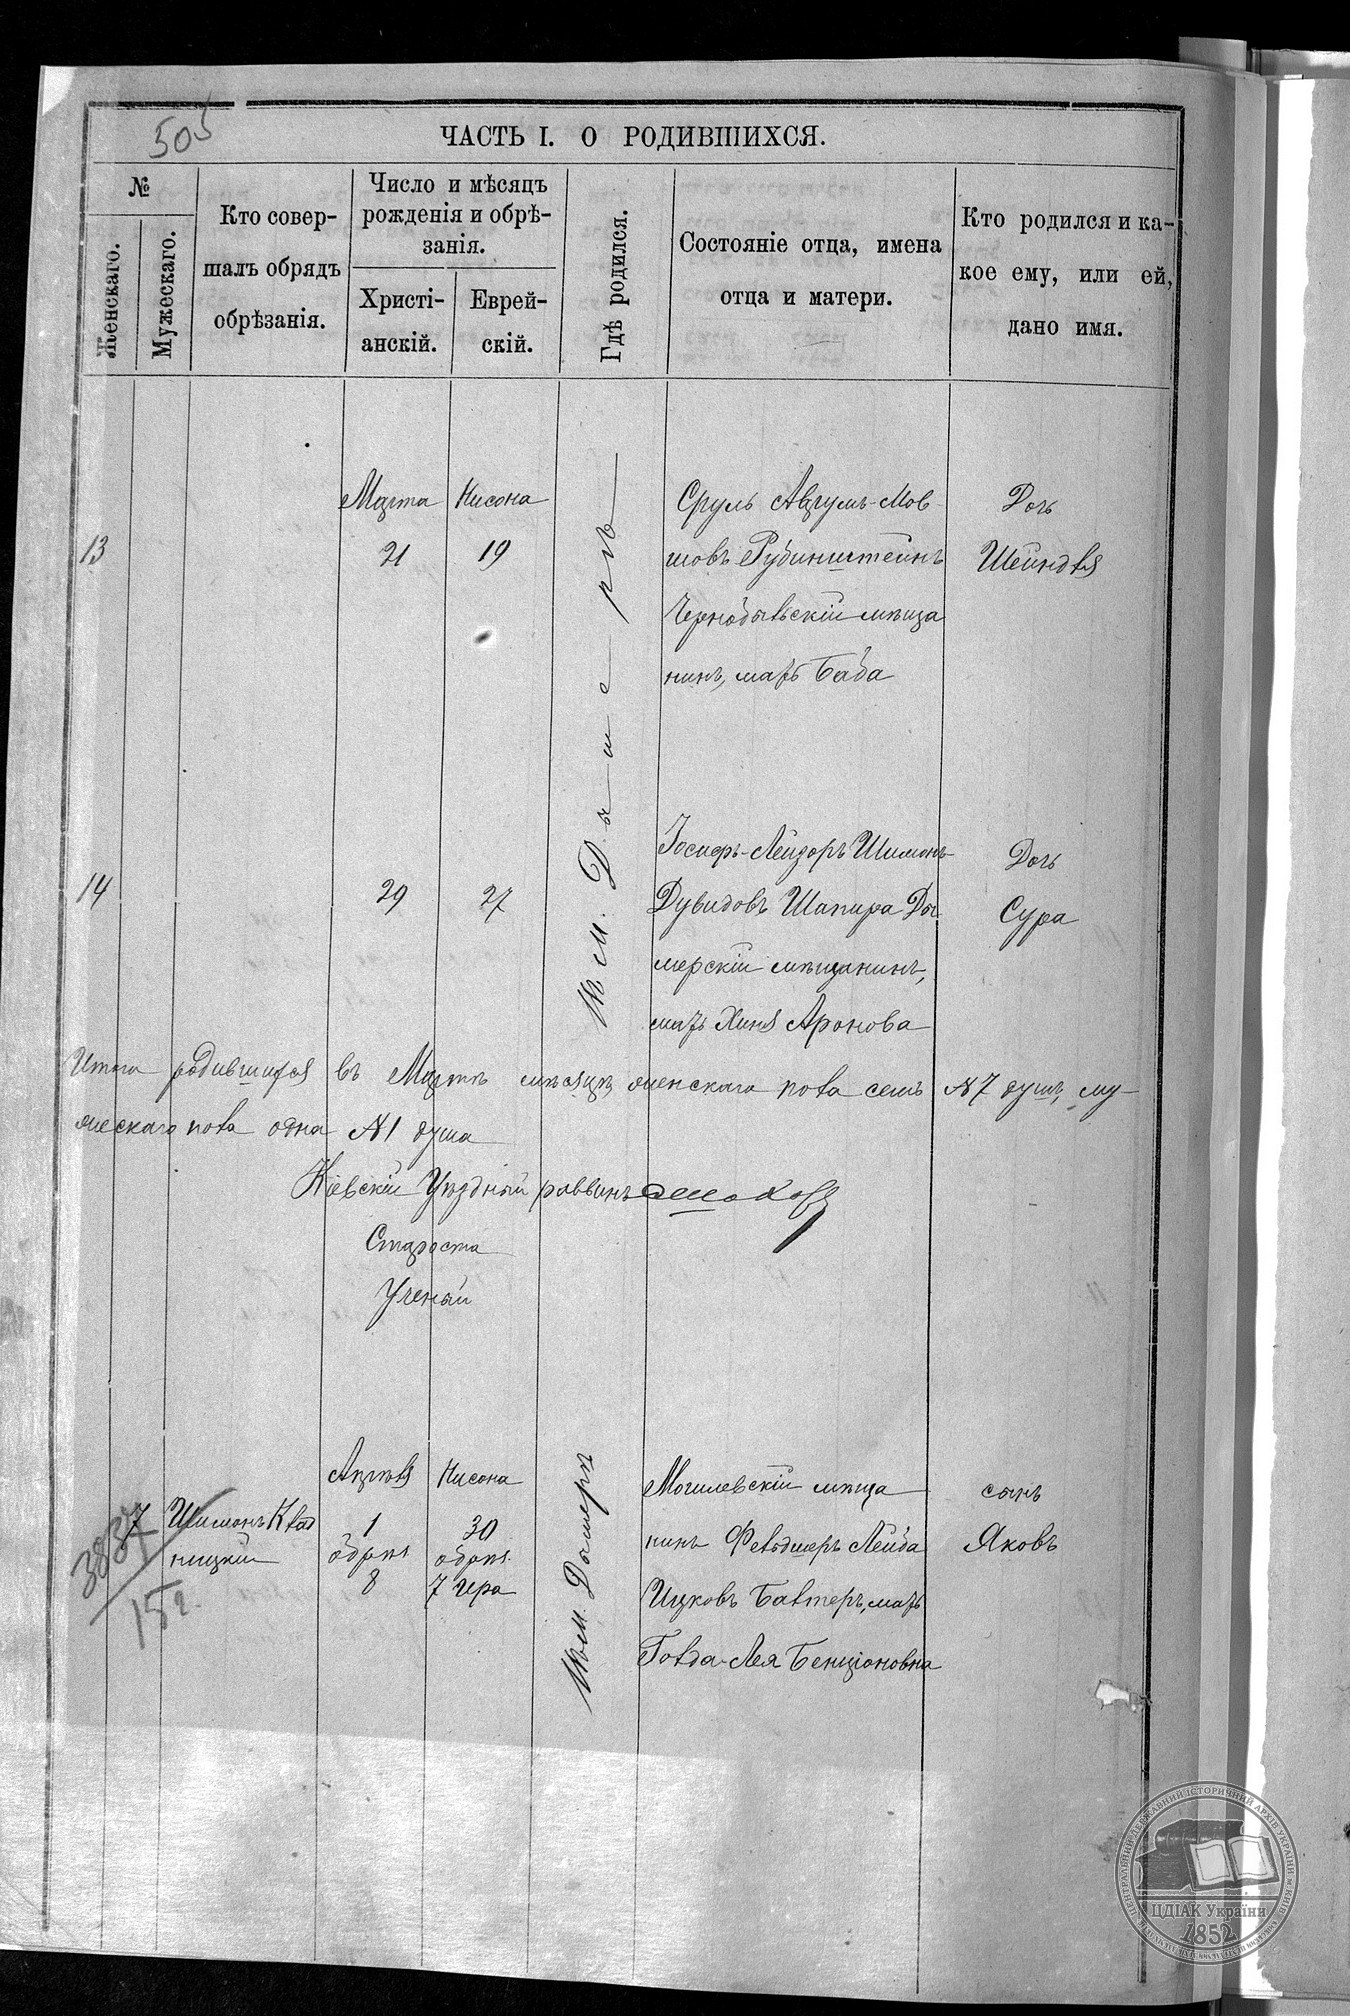 505
ЧАСТЬ I. О РОДИВШИХСЯ.
№
Женскаго.
Мужескаго.
Кто совер-
шалъ обрядъ
обрѣзанія.
Число и мѣсяцъ
рожденія и обрѣ-
занія.
Христі-
анскій.
Еврей-
скій.
Гдѣ родился.
Состояніе отца, имена
отца и матери.
Кто родился и ка-
кое ему, или ей,
дано имя.
13
Марта
21
Нисона
19
Въ м. Дымерѣ
Сруль Авгумъ-Мов-
шовъ Рубинштейнъ
Чернобыльскій мѣща
нинъ, мать Баба
Дочь
Шейндля
14
29
27
Іосифъ-Лейзоръ Шимонъ-
Дувидовъ Шапира Ды
мерскій мѣщанинъ,
мать Хиня Аронова
Дочь
Сура
Итого родившихся въ Мартѣ мѣсяцѣ женскаго пола семь №7 душъ, му-
жескаго пола одна №1 душа
Кіевскій Уѣздный раввинъ
Староста
Ученый
3837
15г.
7
Шимонъ Квас
ницкій
Апрѣля
1
обрѣз.
8
Нисона
30
обрѣз.
7 Іера
Въ м. Дымерѣ
Могилевскій мѣща
нинъ Фельдшеръ Лейба
Ицковъ Балтеръ, мать
Голда-Лея Бенціоновна
сынъ
Яковъ
ЦЕНТРАЛЬНИЙ ДЕРЖАВНИЙ ІСТОРИЧНИЙ АРХІВ УКРАЇНИ М.КИЇВ
ЦДІАК України
1852